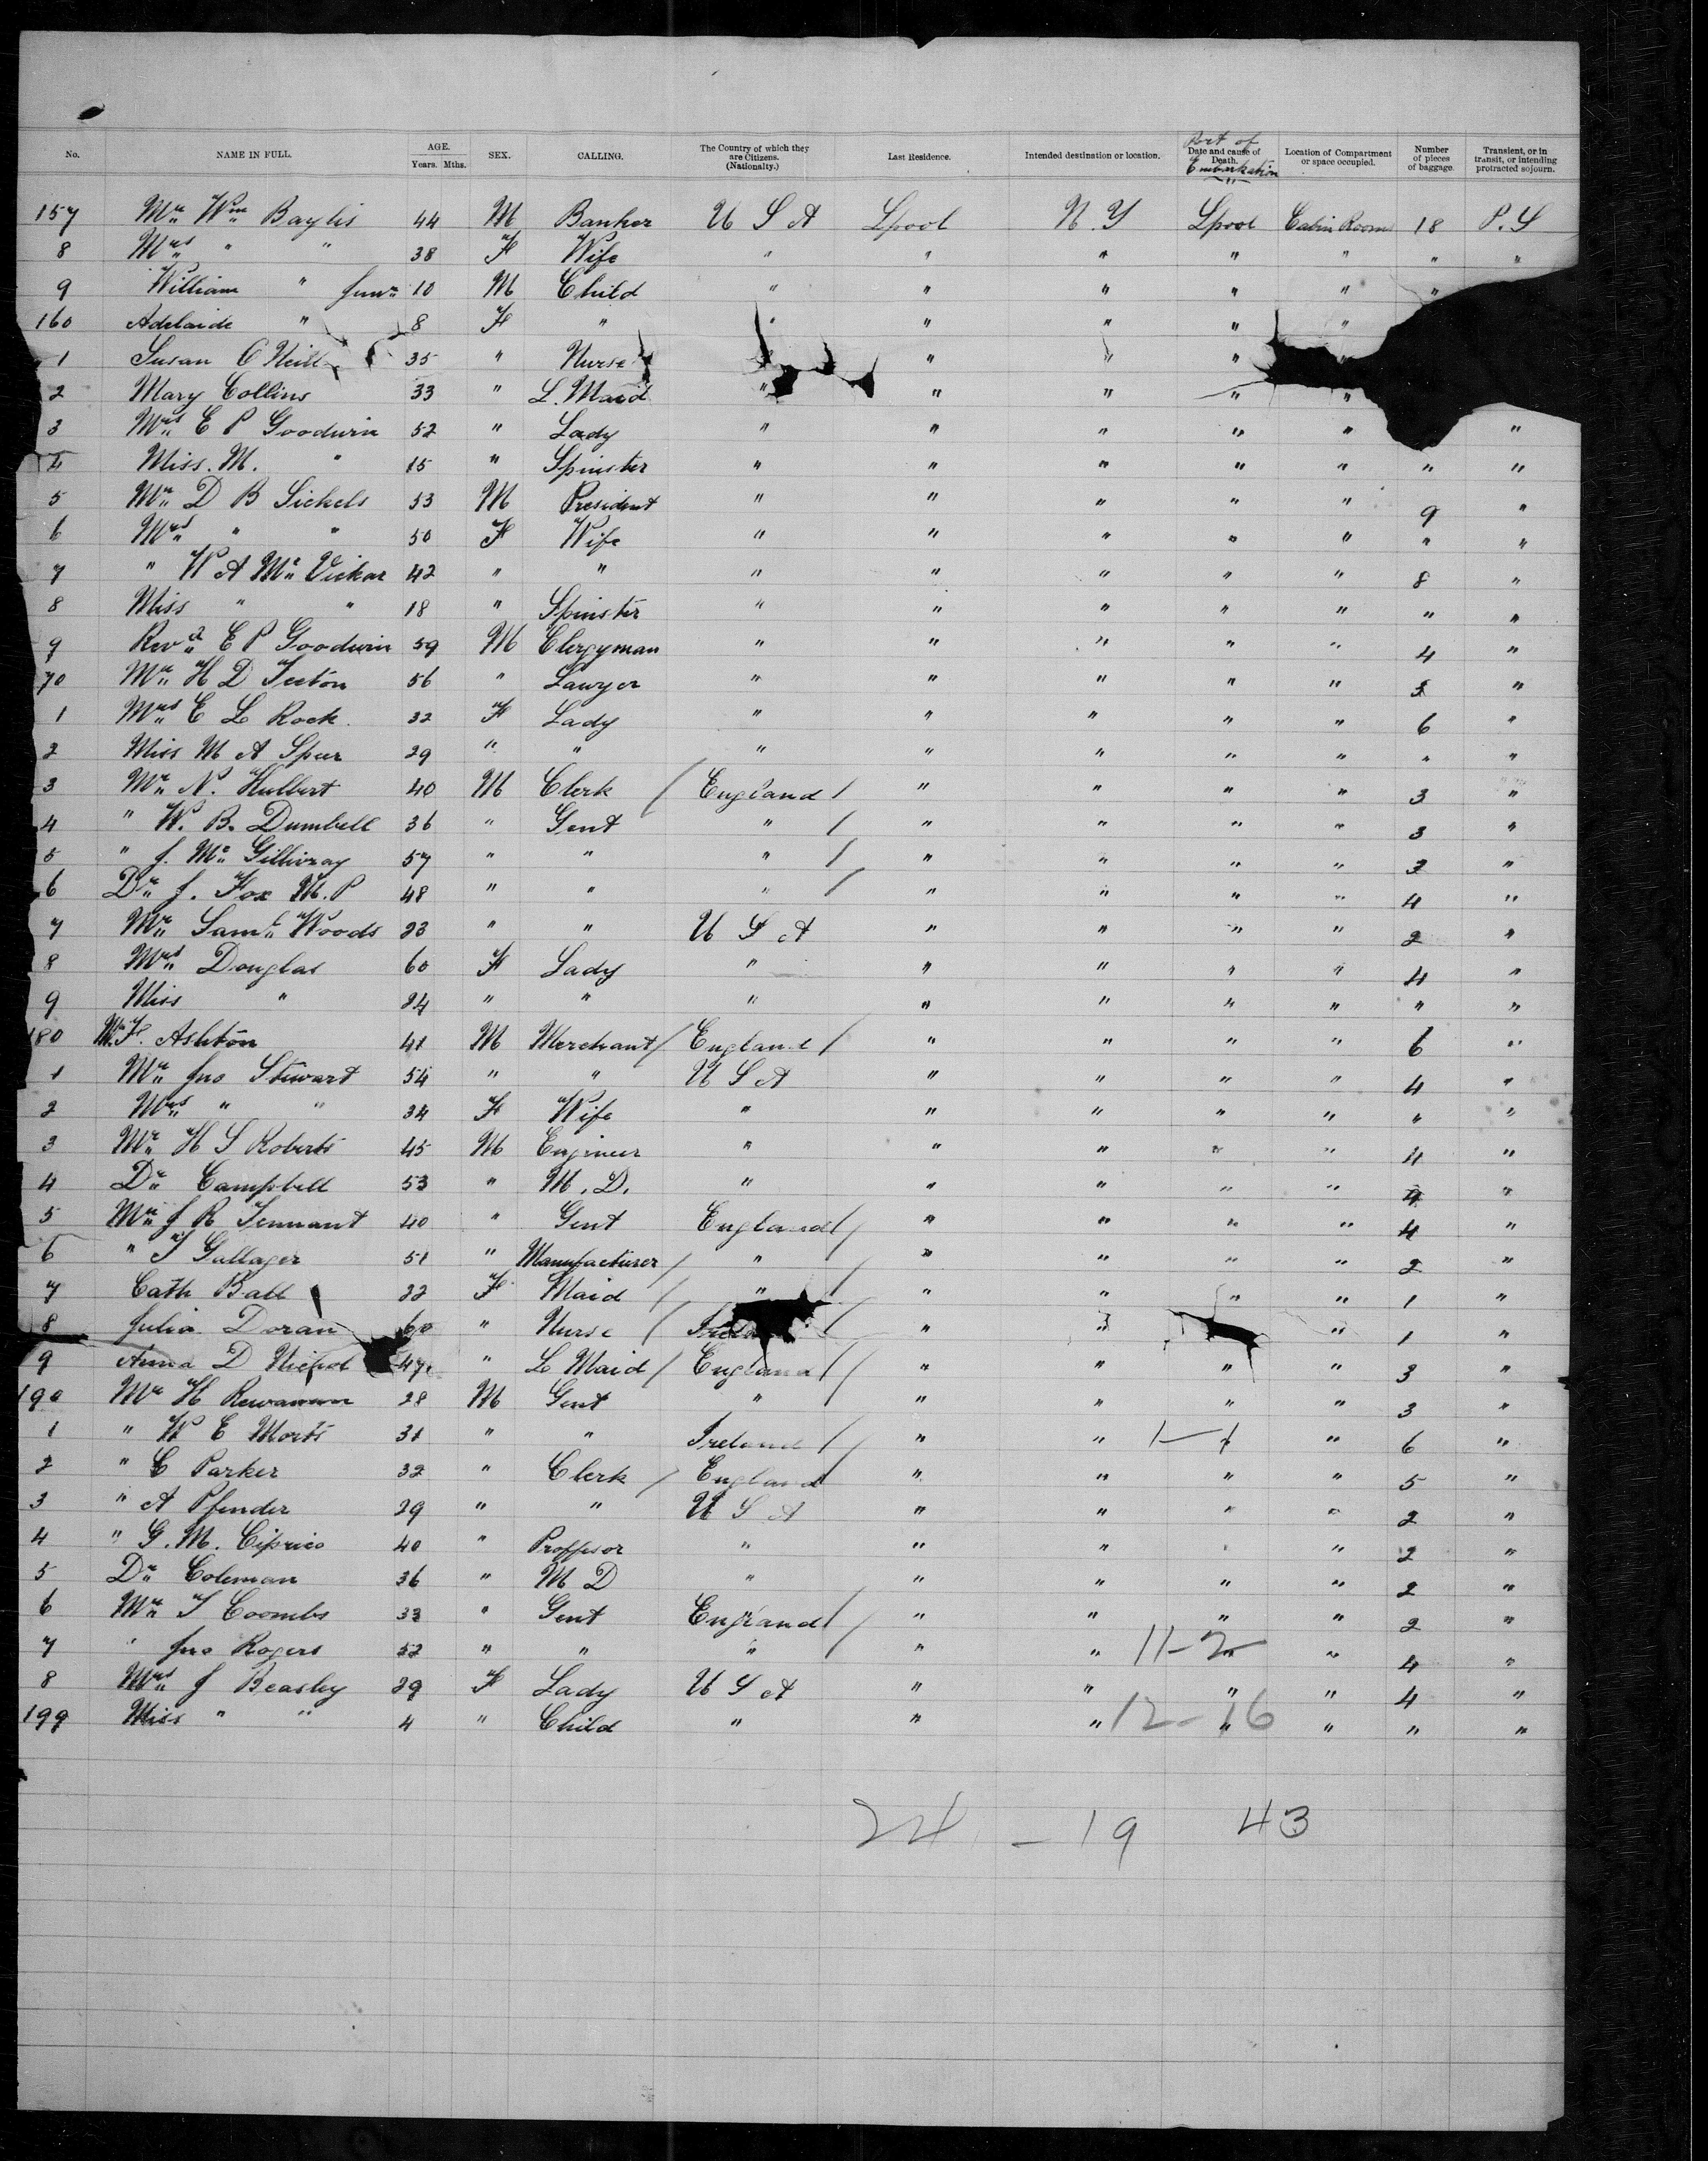 No. NAME IN FULL. AGE. Years. Mths. SEX. CALLING. The Country of which they are Citizens. (Nationality.) Last Residence. Intended destination or location. Date and cause of Death. Port of Embarkation Location of Compartment or space occupied. Number of pieces of baggage. Transient, or in transit, or intending protracted sojourn.
157 Mr Wm Baylis 44 M Banker U S A Lpool N.Y Lpool Cabin Room 18 P.S
8 Mrs " " 38 F Wife " " " " " " "
9 William " Junr 10 M Child " " " " " "
160 Adelaide " 8 F " " " " " "
1 Susan O'Neill 35 " Nurse " " "
2 Mary Collins 33 " L. Maid " " " " "
3 Mrs E P Goodwin 52 " Lady " " " " " "
4 Miss. M. " 15 " Spinster " " " " " " "
5 Mr D B Sickels 53 M President " " " " " 9 "
6 Mrs " " 50 F Wife " " " " " " "
7 " W A Mc Vickar 42 " " " " " " " 8 "
8 Miss " " 18 " Spinster " " " " " " "
9 Revd E P Goodwin 59 M Clergyman " " " " " 4 "
70 Mr H D 56 " Lawyer " " " " " 3 "
1 Mrs E L Rock. 32 F Lady " " " " " 6 "
2 Miss M A Spur 29 " " " " " " " " "
3 Mr N. Hulbert 40 M Clerk / England / " " " " 3 "
4 " W. B. Dumbell 36 " Gent " / " " " " 3 "
5 " J. Mc Gillivray 57 " " " / " " " " 3 "
6 Dr J. Fox M.P 48 " " " / " " " " 4 "
7 Mr Saml Woods 23 " " U S A " " " " 2 "
8 Mrs Douglas 60 F Lady " " " " " 4 "
9 Miss " 24 " " " " " " " " "
180 Mr F. Ashton 41 M Merchant / England / " " " " 6 "
1 Mr Jno Stewart 54 " " U S A " " " " 4 "
2 Mrs " " 34 F Wife " " " " " " "
3 Mr H S Roberts 45 M Engineer " " " " " 4 "
4 Dr Campbell 53 " M. D. " " " " " "
5 Mr J R Tennant 40 " Gent England / / " " " " 4 "
6 " T Gallager 51 " Manufacturer / " / " " " " 2 "
7 Cath Ball 22 F Maid / " / " " " " 1 "
8 Julia Doran 60 " Nurse / / " " " 1 "
9 Anna D 47 " L Maid / England / / " " " " 3 "
190 Mr H 28 M Gent " / " " " " 3 "
1 " W E Morts 31 " " Ireland / / " " 1 — 1 " " 6 "
2 " C Parker 32 " Clerk / England " " " " 5 "
3 " A Pfender 29 " " U S A " " " " 2 "
4 " G. M. Ciprico 40 " Proffesor " " " " " 2 "
5 Dr Coleman 36 " M D " " " " " 2 "
6 Mr T Coombs 33 " Gent England / / " " " " 2 "
7 " Jno Rogers 52 " " " / " " 11-2 " " 4 "
8 Mrs J Beasley 29 F Lady U S A " " " " 4 "
199 Miss " " 4 " Child " " " 12-16 " " " "
24 - 19 43